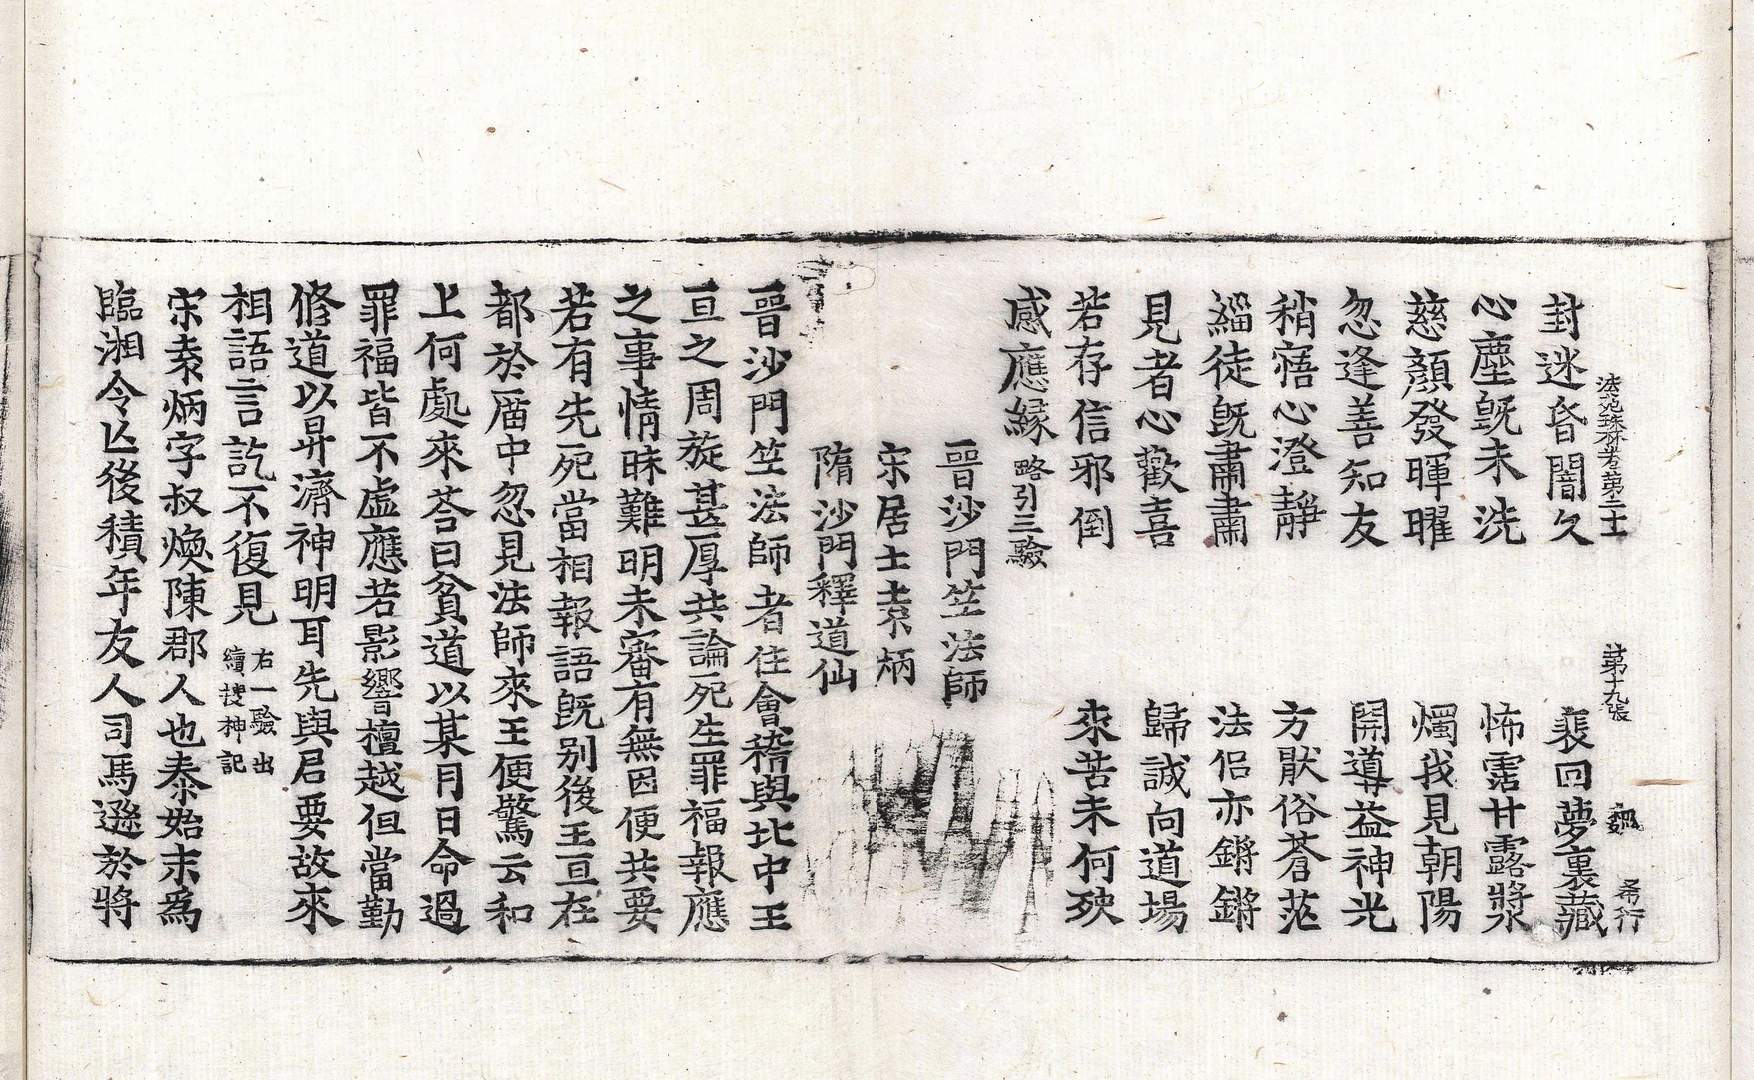 法苑珠林卷第二十 第十九張 翺 希行
封迷昏闇久 裴回夢裏藏
心塵旣未洗 怖霑甘露漿
慈顏發暉曜 燭我見朝陽
忽逢善知友 開導益神光
稍寤心澄靜 方猒俗蒼茫
緇徒旣肅肅 法侶亦鏘鏘
見者心歡喜 歸誠向道場
若存信邪倒 來苦未何殃
感應緣略引三驗
晉沙門竺法師
宋居士袁炳
隋沙門釋道仙
晉沙門竺法師者住會稽與北中王
亘之周旋甚厚共論死生罪福報應
之事情昧難明未審有無因便共要
若有先死當相報語旣別後王亘在
都於廇中忽見法師來王便驚云和
上何處來荅曰貧道以某月日命過
罪福皆不虛應若影響檀越但當勤
修道以昇濟神明耳先與君要故來
相語言訖不復見右一驗出續搜神記
宋袁炳字叔煥陳郡人也泰始末爲
臨湘令亾後積年友人司馬遜於將